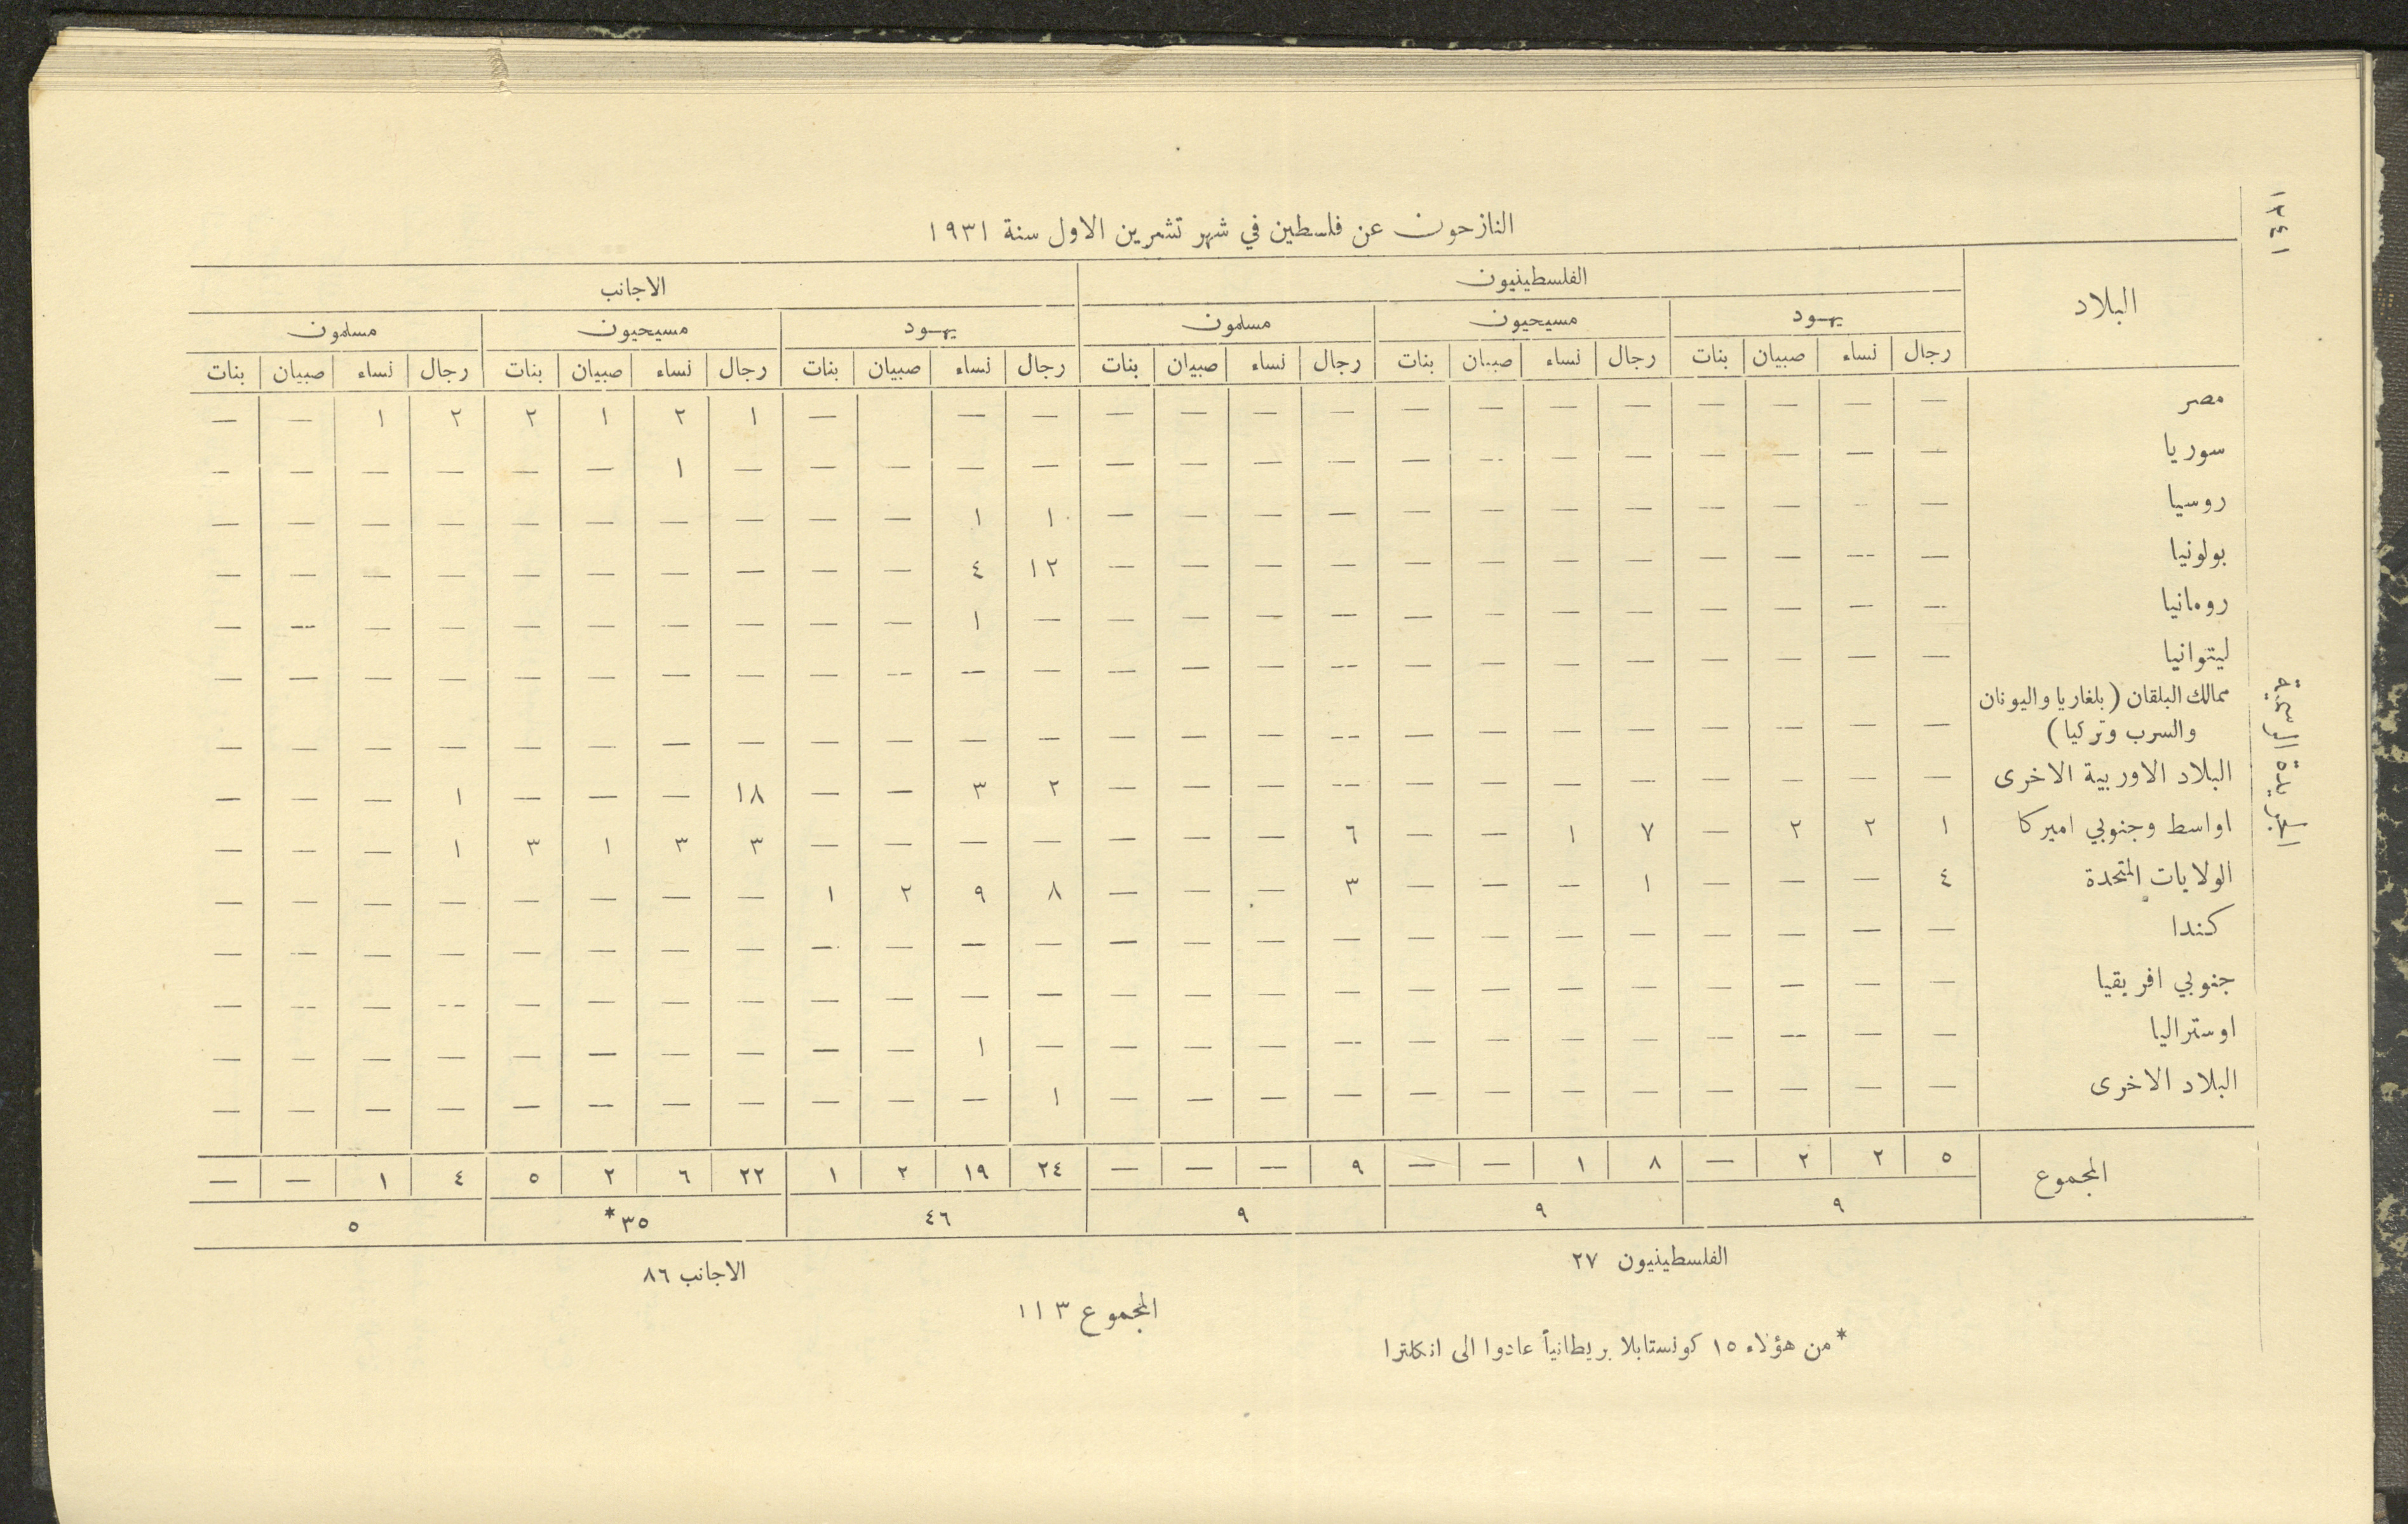 ١٢٤١
الجريدة الرسمية
النازحون عن فلسطين في شهر تشرين الاول سنة ١٩٣١
البلاد الفلسطينيون الاجانب
يهود مسيحيون مسلمون يهود مسيحيون مسلمون
رجال نساء صبيان بنات رجال نساء صبيان بنات رجال نساء صبيان بنات رجال نساء صبيان بنات رجال نساء صبيان بنات رجال نساء صبيان بنات
مصر — — — — — — — — — — — — — — — ١ ٢ ١ ٢ ٢ ١ — —
سوريا — — — — — — — — — — — — — — — — — ١ — — — — — —
روسيا — — — — — — — — — — — — ١ ١ — — — — — — — — — —
بولونيا — — — — — — — — — — — — ١٢ ٤ — — — — — — — — — —
رومانيا — — — — — — — — — — — — — ١ — — — — — — — — — —
ليتوانيا — — — — — — — — — — — — — — — — — — — — — — — —
ممالك البلقان (بلغاريا واليونان
والسرب وتركيا) — — — — — — — — — — — — — — — — — — — — — — — —
البلاد الاوربية الاخرى — — — — — — — — — — — — ٢ ٣ — — ١٨ — — — ١ — — —
اواسط وجنوبي اميركا ١ ٢ ٢ — ٧ ١ — — ٦ — — — — — — — ٣ ٣ ١ ٣ ١ — — —
الولايات المتحدة ٤ — — — ١ — — — ٣ — — — ٨ ٩ ٢ ١ — — — — — — — —
كندا — — — — — — — — — — — — — — — — — — — — — — — —
جنوبي افريقيا — — — — — — — — — — — — — — — — — — — — — — — —
اوستراليا — — — — — — — — — — — — — ١ — — — — — — — — — —
البلاد الاخرى — — — — — — — — — — — — ١ — — — — — — — — — — —
المجموع ٥ ٢ ٢ — ٨ ١ — — ٩ — — — ٢٤ ١٩ ٢ ١ ٢٢ ٦ ٢ ٥ ٤ ١ — —
٩ ٩ ٩ ٤٦ ٣٥* ٥
الفلسطينيون ٢٧ الاجانب ٨٦
المجموع ١١٣
*من هؤلاء ١٥ كونستابلا بريطانياً عادوا الى انكلترا